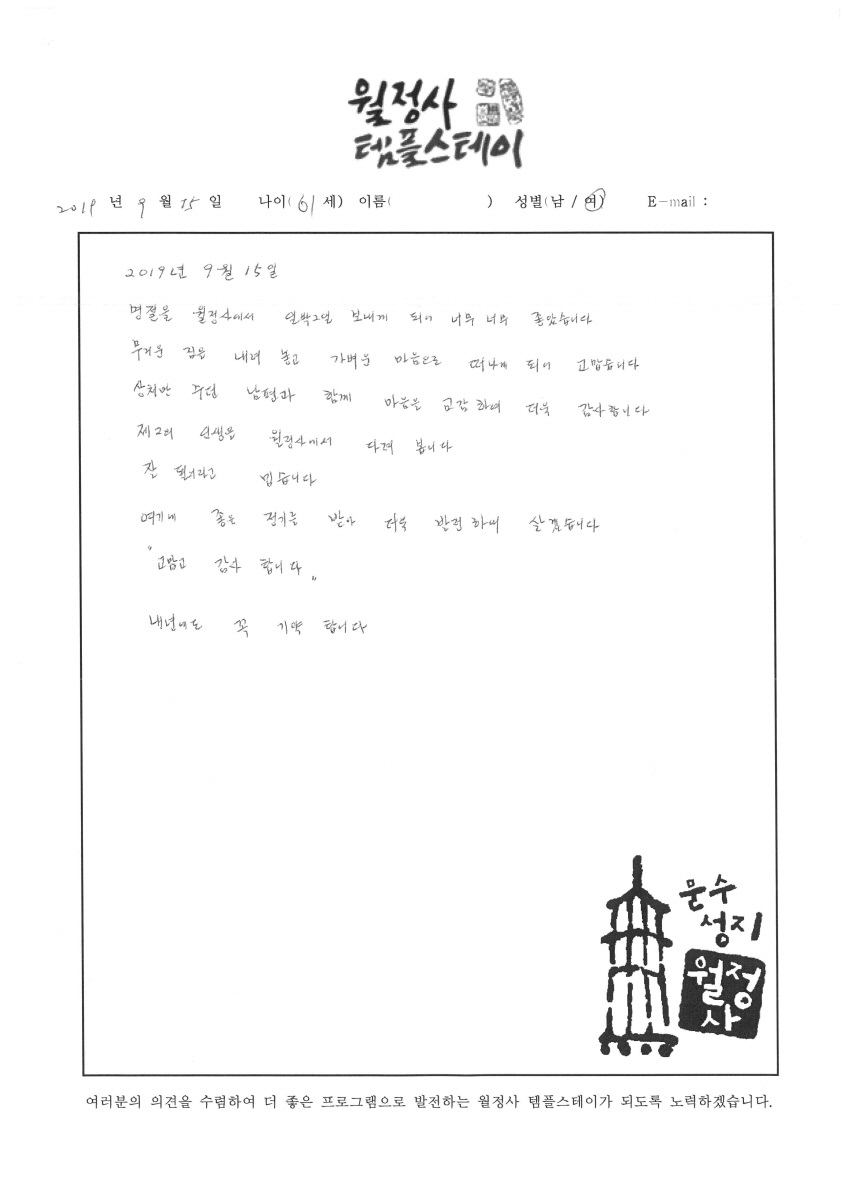 월정사
템플스테이
2019 년 9 월 15 일 나이( 61 세) 이름( ) 성별(남 / 여) E-mail :
2019년 9월 15일
명절을 월정사에서 일박2일 보내게 되어 너무 너무 좋았습니다
무거운 짐을 내려 놓고 가벼운 마음으로 떠나게 되어 고맙습니다
상처만 주던 남편과 함께 마음을 교감 하여 더욱 감사합니다
제2의 인생을 월정사에서 다져 봅니다
잘 될거라고 믿습니다
여기에 좋은 정기를 받아 더욱 발전 하며 살겠습니다
"고맙고 감사 합니다"
내년에도 꼭 기약 합니다
문수
성지
월정
사
여러분의 의견을 수렴하여 더 좋은 프로그램으로 발전하는 월정사 템플스테이가 되도록 노력하겠습니다.